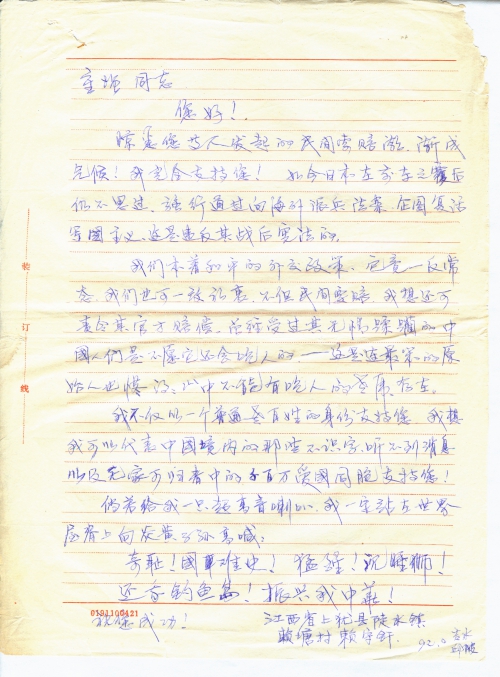 童增同志
您好!
惊悉您等人发起的民间索赔潮,渐成
气候!我完全支持您! 如今日本在京在之后
仍不思过,强行通过向海外派兵法案,企图复活
军国主义,这是违反其战后宪法的。
我们本着和平的外交政策,一反常
态,我们也可一致,不但民间索赔,我想还可
官方赔偿,受过其的中
國人们是不愿它还会吃人的——这是连最笨的原
始人也懂的,心中不能有吃人的存在。
我不仅以一个普通老百姓的身份支持您,我想
我可以代表中國境内的那些不识字、听不到消息
以及无家可归者中的千百万爱國同胞支持您!
倘若给我一只超高音喇叭,我一定站在世界
屋脊上向炎黄子孙高喊:
奇耻!國难史! 猛醒!沉睡狮!
还我钓鱼岛! 振兴我中华!
祝您成功!
江西省上犹县陡水镇
赖塘村赖
92.
装
订
线
0391100421